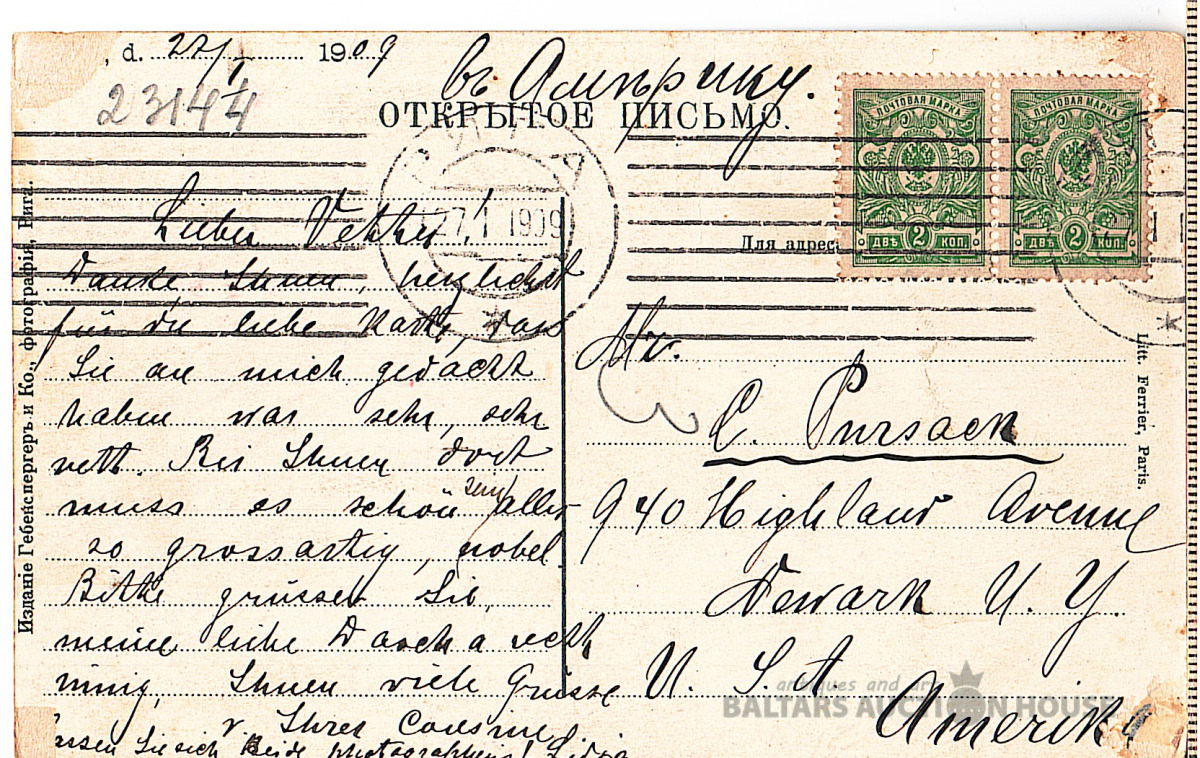 , d. 27/I 1909
23144
въ Америку.
ОТКРЫТОЕ ПИСЬМО.
ПОЧТОВАЯ МАРКА
ДВѢ 2 КОП.
ПОЧТОВАЯ МАРКА
ДВѢ 2 КОП.
27.1 1909
Для адрес
Издание Гебенспергеръ и Ко., фотографы, Риг.
Litt. Ferrier, Paris.
Lieber Vetter!
Danke Ihnen, herzlichst
für die liebe Karte, dass
Sie an mich gedacht
haben war sehr, sehr
nett. Bei Ihnen dort
muss es schön sein, alles
so grossartig, nobel.
Bitte grüssen Sie,
meine liebe Dascha recht
innig, Ihnen viele Grüsse
v. Ihrer Cousine
Lassen Sie sich Beide photographieren!
Mr.
Pursack
940 Highland Avenue
Newark N. Y.
U. S. A.
Amerika
antiques and art
BALTARS AUCTION HOUSE